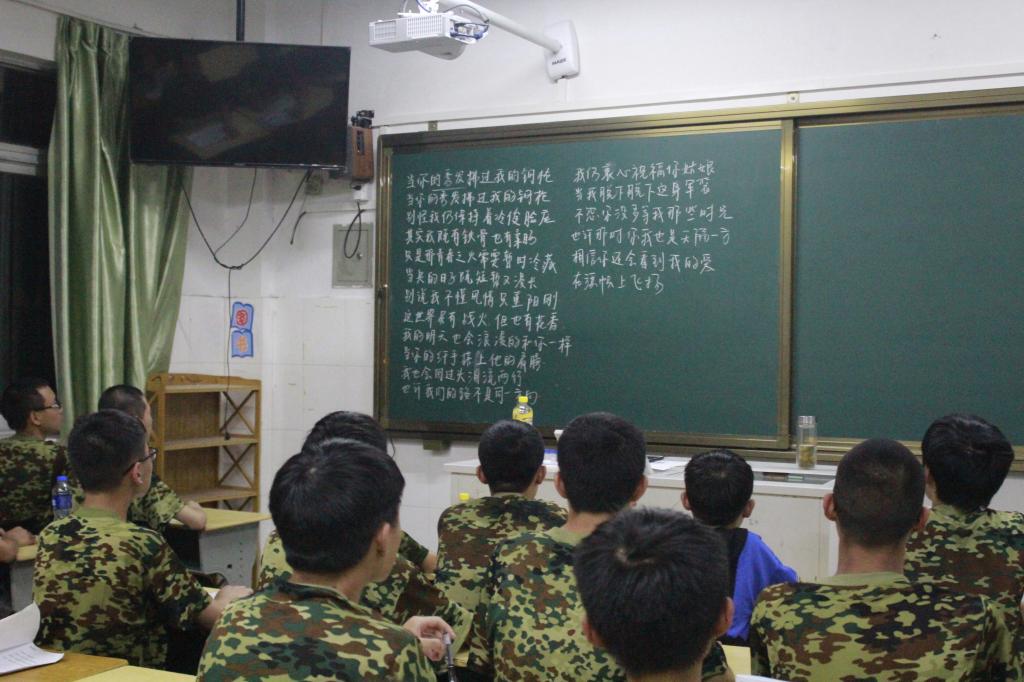 当你的秀发拂过我的钢枪
当你的秀发拂过我的钢枪
别怪我仍保持着冷俊脸庞
其实我既有铁骨也有柔肠
只是那青春之火需要暂时冷藏
当兵的日子既短暂又漫长
别说我不懂风情只重阳刚
这世界虽有战火但也有花香
我的明天也会浪漫的和你一样
当你的纤手搭上他的肩膀
我也会回过头泪流两行
也许我们的路不是同一方向
我仍衷心祝福你姑娘
当我脱下脱下这身军装
不怨你没多等我那些时光
也许那时你我也是天隔一方
相信你还会看到我的爱
在旗帜上飞扬
图
书